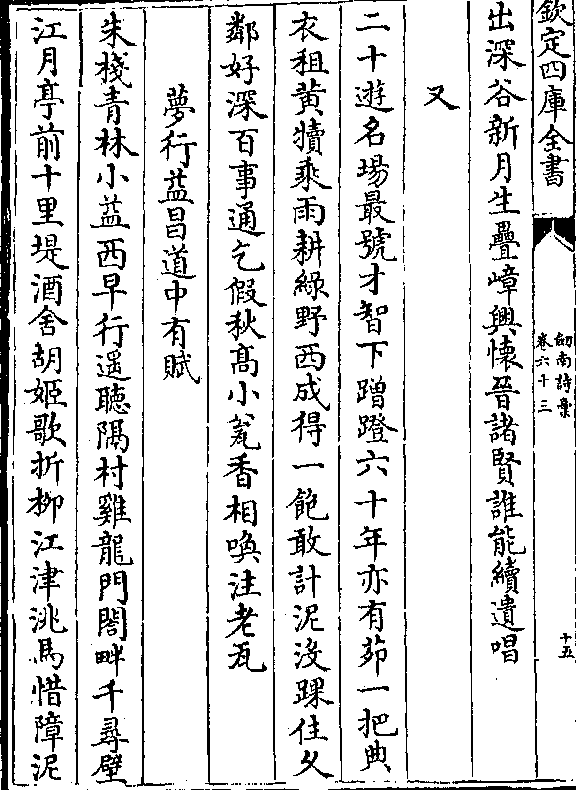 欽定四庫全書
劍南詩稾
卷六十三
十五
出深谷新月生疊嶂興懷晉諸賢誰能續遺唱
又
二十遊名場最號才智下蹭蹬六十年亦有茆一把典
衣租黄犢乘雨耕緑野西成得一飽敢計泥没踝住乆
鄰好深百事通乞假秋髙小瓮香相喚注老瓦
夢行葢昌道中有賦
朱棧青林小葢西早行遥聽隔村雞龍門閣畔千尋壁
江月亭前十里堤酒舍胡姬歌折柳江津洮馬惜障泥